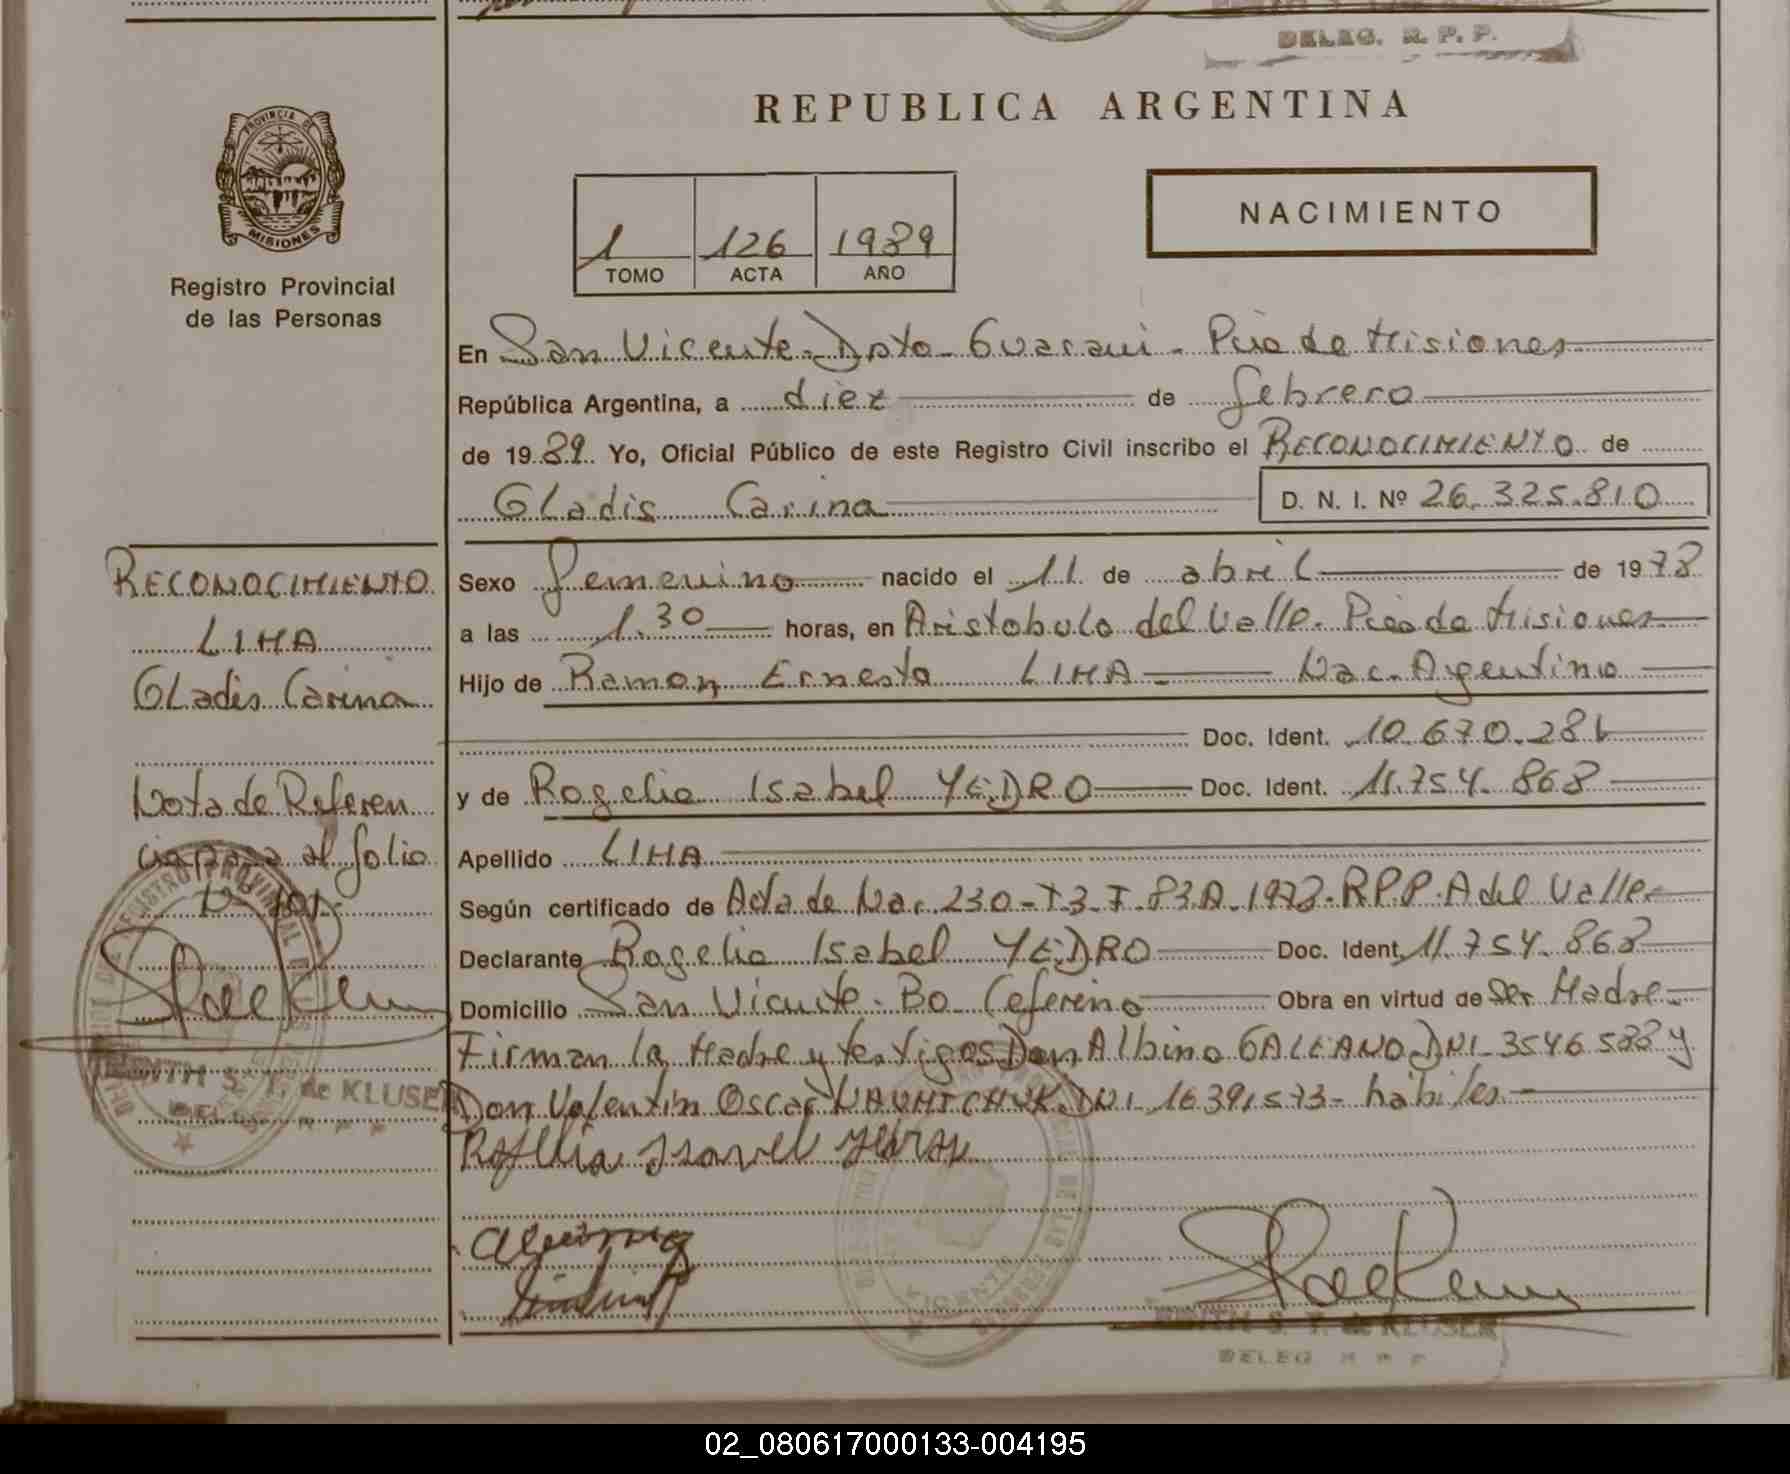 DELEG. R. P. P.
REPUBLICA ARGENTINA
PROVINCIA DE
MISIONES
Registro Provincial
de las Personas
1 126 1989
TOMO ACTA AÑO
NACIMIENTO
En San Vicente - Dpto - Guarani - Pcia de Misiones
República Argentina, a diez de febrero
de 1989. Yo, Oficial Público de este Registro Civil inscribo el RECONOCIMIENTO de
Gladis Carina D. N. I. Nº 26.325.810
RECONOCIMIENTO
LIMA
Gladis Carina
Nota de Referen
cia pasa al folio
Nº 101
EDITH S. T. de KLUSER
DELEG. R. P. P.
Sexo femenino nacido el 11 de abril de 1978
a las 1.30 horas, en Aristobulo del Valle. Pcia de Misiones
Hijo de Ramon Ernesto LIMA - Nac. Argentino
Doc. Ident. 10.670.281
y de Rogelia Isabel YEDRO Doc. Ident. 11.754.868
Apellido LIMA
Según certificado de Acta de Nac. 230 - T.3 - F. 83 A. 1978. R.P.P. A del Valle
Declarante Rogelia Isabel YEDRO Doc. Ident. 11.754.868
Domicilio San Vicente. Bo Ceferino Obra en virtud de Ser Madre
Firman la Madre y testigos Don Albino GALEANO DNI 3546588 y
Don Valentin Oscar DNI 16391573 - habiles
EDITH S. T. de KLUSER
DELEG. R. P. P.
02_080617000133-004195